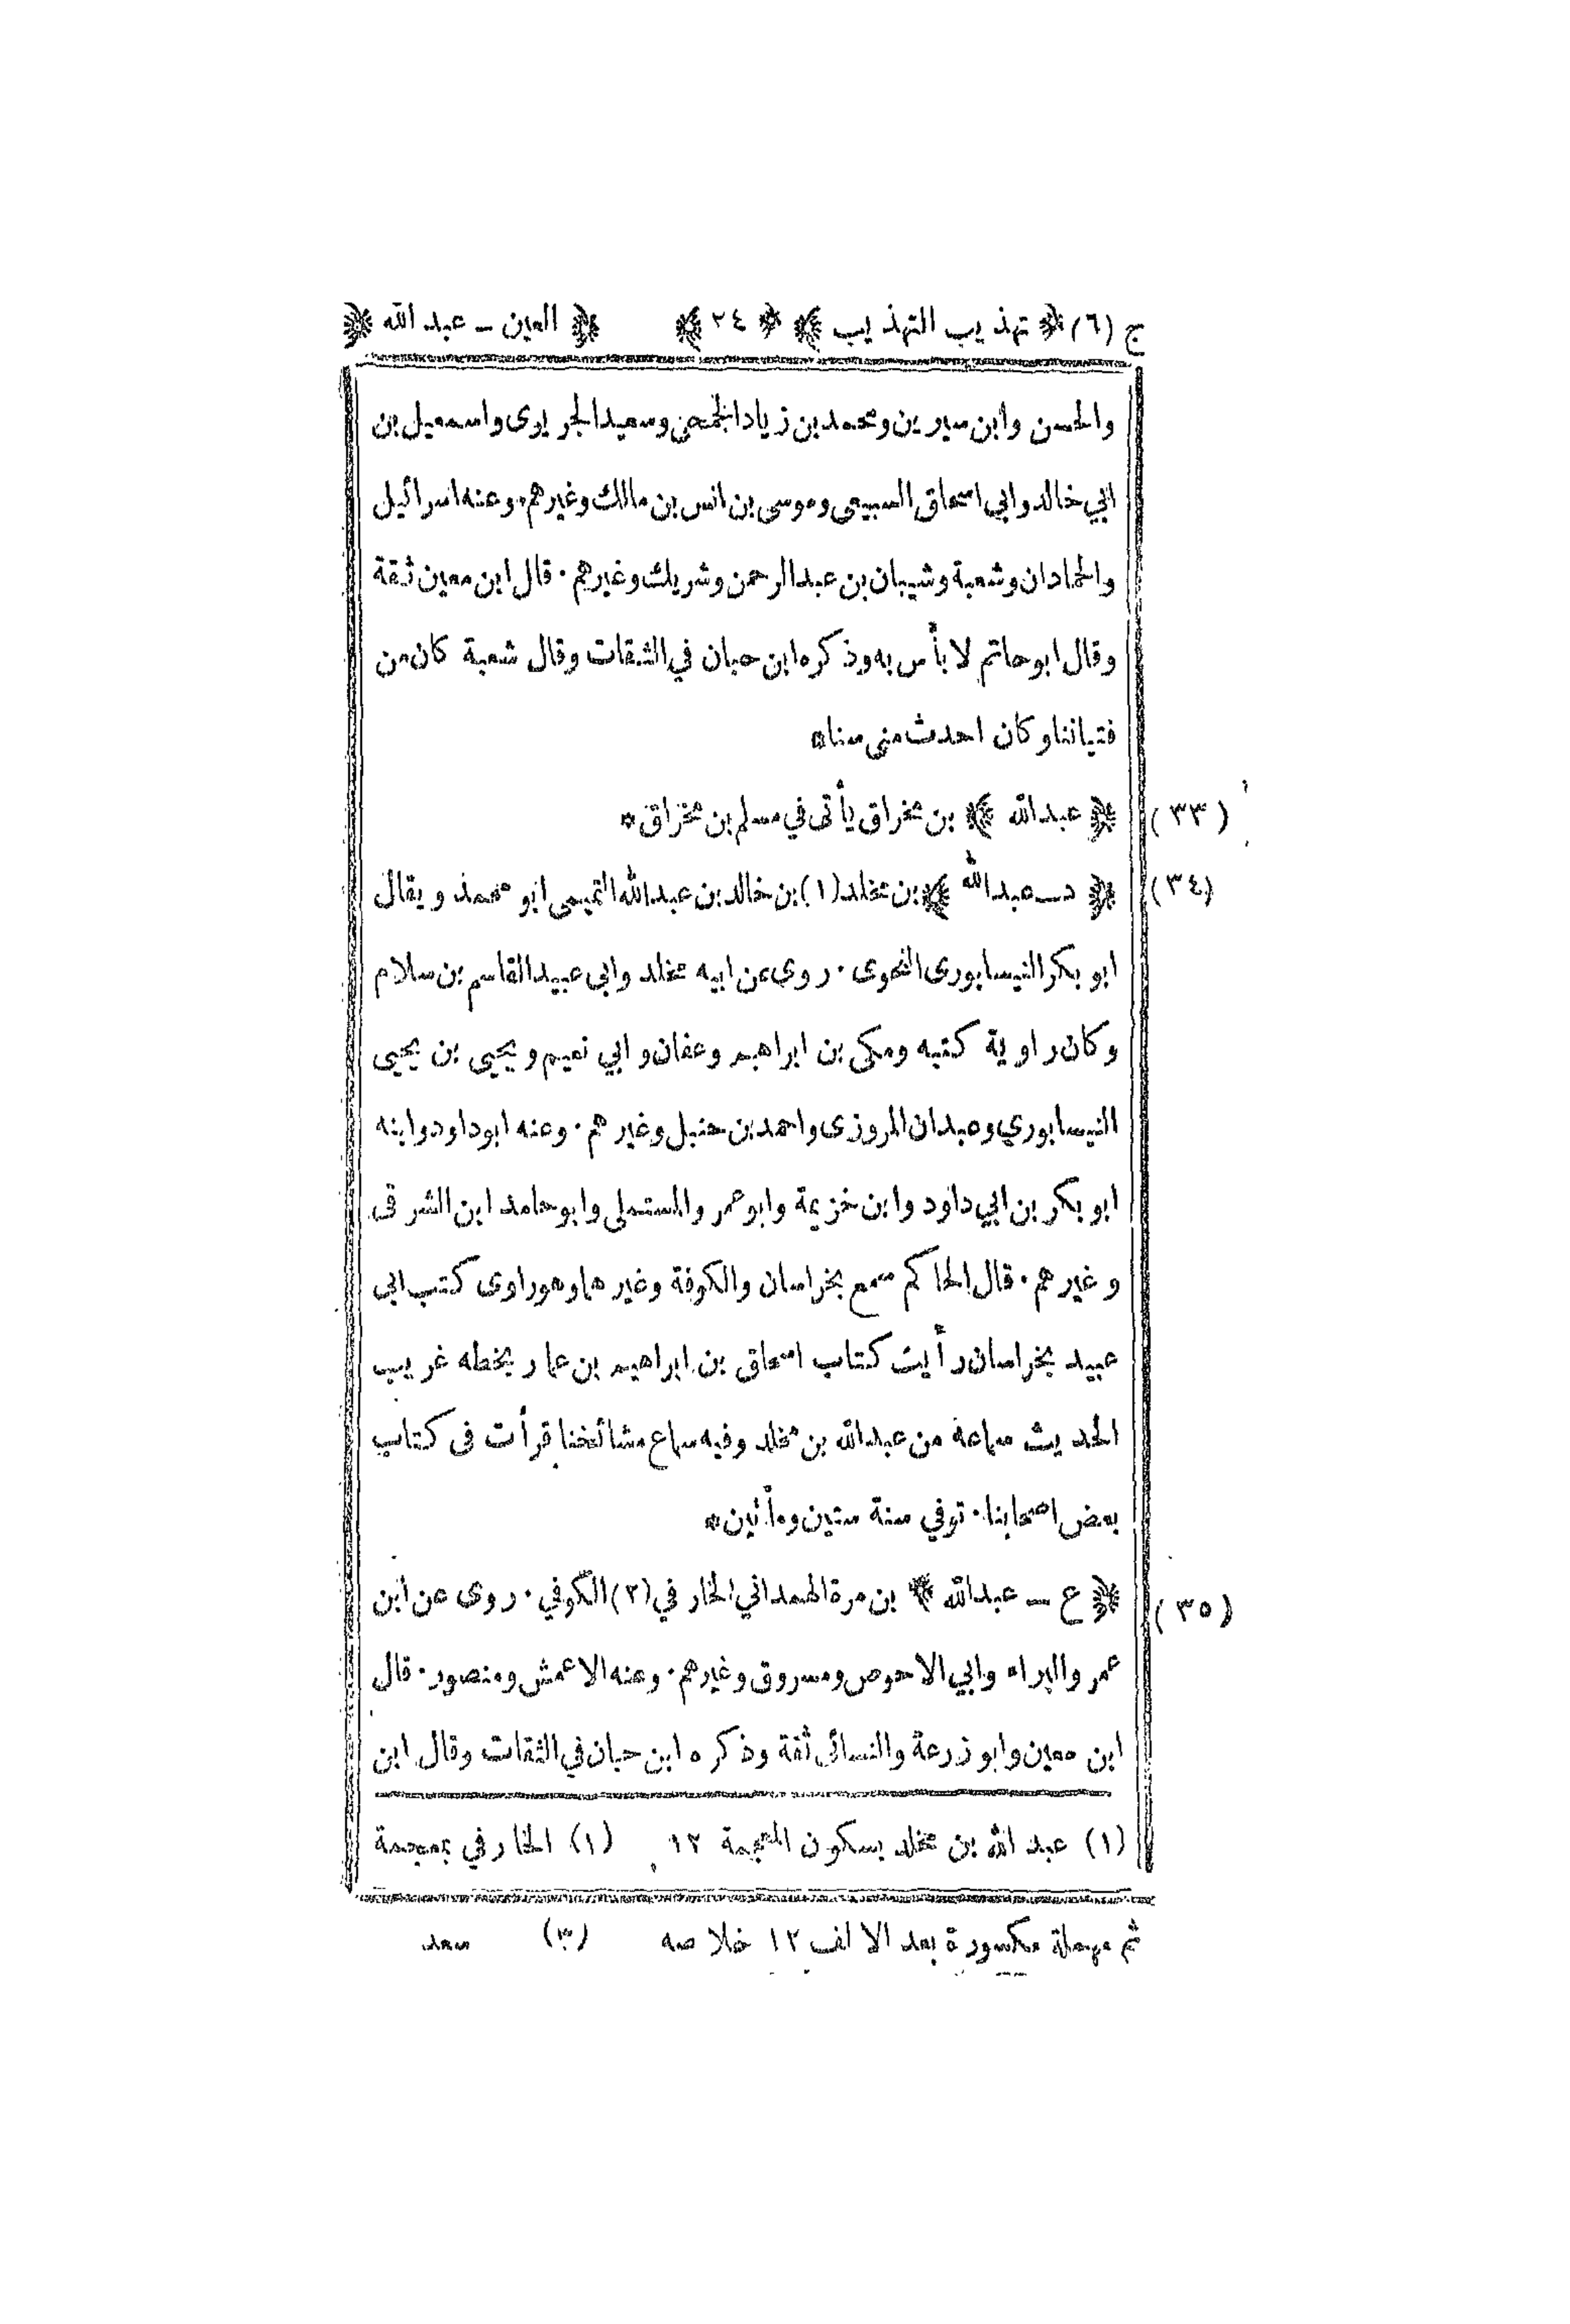 ج (٦) ﴿ تهذيب التهذيب ﴾ ﴿ ٢٤ ﴾ ﴿ العين – عبد الله ﴾
والحسن وابن سيرين ومحمد بن زياد الجمحي وسعيد الجريرى واسمعيل بن
ابي خالد وابي اسحاق السبيعى وموسى بن انس بن مالك وغيرهم · وعنه اسرائيل
والحمادان وشعبة وشيبان بن عبد الرحمن وشريك وغيرهم · قال ابن معين ثقة
وقال ابو حاتم لا بأس به وذكره ابن حبان في الثقات وقال شعبة كان من
فتياننا وكان احدث منى سنا*
(٣٣) ﴿ عبد الله ﴾ بن مخراق يأتى في مسلم بن مخراق*
(٣٤) ﴿ د – عبد الله ﴾ بن مخلد (١) بن خالد بن عبد الله التميمى ابو محمد ويقال
ابو بكر النيسابورى النحوى · روى عن ابيه مخلد وابي عبيد القاسم بن سلام
وكان راوية كتبه ومكى بن ابراهيم وعفان وابي نعيم ويحيى بن يحيى
النيسابوري وعبدان المروزى واحمد بن حنبل وغيرهم · وعنه ابو داود وابنه
ابو بكر بن ابي داود وابن خزيمة وابو عمر والمستملى وابو حامد ابن الشرقى
وغيرهم · قال الحاكم سمع بخراسان والكوفة وغيرهما وهو راوى كتب ابي
عبيد بخراسان رأيت كتاب اسحاق بن ابراهيم بن عمار بخطه غريب
الحديث سماعه من عبد الله بن مخلد وفيه سماع مشائخنا قرأت فى كتاب
بعض اصحابنا · توفي سنة ستين ومأتين*
(٣٥) ﴿ ع – عبد الله ﴾ بن مرة الهمداني الخارفي (٢) الكوفي · روى عن ابن
عمر والبراء وابي الاحوص ومسروق وغيرهم · وعنه الاعمش ومنصور · قال
ابن معين وابو زرعة والنسائى ثقة وذكره ابن حبان في الثقات وقال ابن
(١) عبد الله بن مخلد بسكون المعجمة ١٢ (١) الخارفي بمعجمة
ثم مهملة مكسورة بعد الالف ١٢ خلاصه (٣) سعد